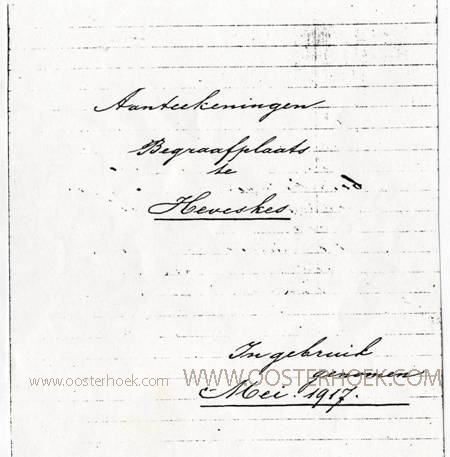 Aanteekeningen
Begraafplaats
te
Heveskes.
In gebruik
genomen
Mei. 1917.
www.oosterhoek.com
WWW.OOSTERHOEK.COM